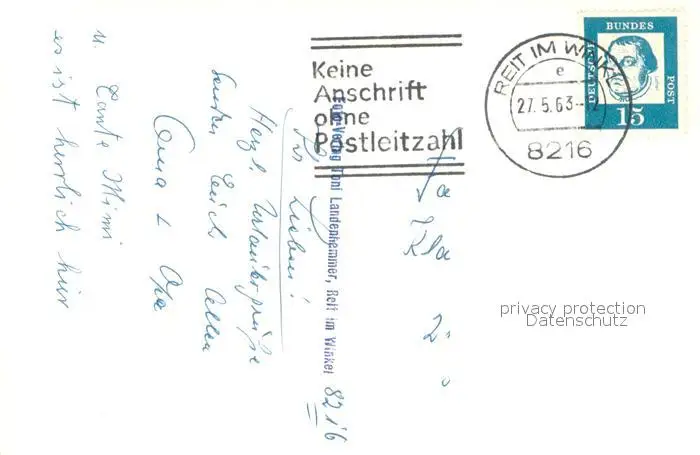 Keine
Anschrift
ohne
Postleitzahl
REIT IM WINKL
e
27.5.63.-12
8216
DEUTSCHE
BUNDES
POST
15
Ihr Lieben!
Herzl. Urlaubsgrüße
senden Euch allen
Oma & Opa
u. Tante Mimi
es ist herrlich hier
Foto-Verlag Toni Landenhammer, Reit im Winkel 8216
Fa
Kla
2
privacy protection
Datenschutz